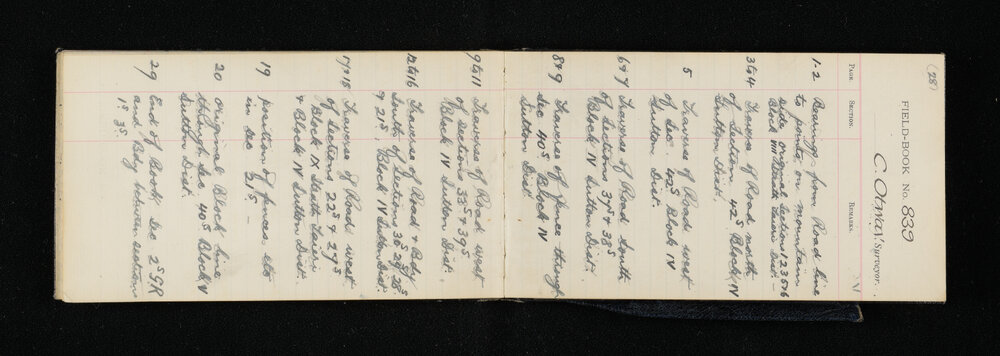 (28)
FIELD-BOOK No. 839
C. Otway Surveyor.
PAGE. SECTION. REMARKS.
1-2 Bearings from Road line
to points on mountain
side original Sections 1 2 3 5 & 6
Block VIII Dist.-
3 to 4 Traverse of Road north
of Section 42S Block IV
Sutton Dist.
5 Traverse of Road west
of Sec. 42S Block IV
Sutton Dist.
6 & 7 Traverse of Road South
of Sections 37S & 38S
Block IV Sutton Dist.
8 & 9 Traverse of fence through
Sec 40S Block IV
Sutton Dist.
9 to 11 Traverse of Road west
of Sections 33S & 39S
Block IV Sutton Dist.
12 to 16 Traverse of Road & Bdy
South of Sections 30S
& 21S Block IV Sutton Dist.
17 & 18 Traverse of Road west
of Sections 22S & 29S
Block IX
& Block IV Sutton Dist.
19 portion of fences etc
in sec 31S -
20 original Block line
through Sec 40S Block IV
Sutton Dist.
29 End of Book Sec 2S GR
and Bdy between sections
1S 3S